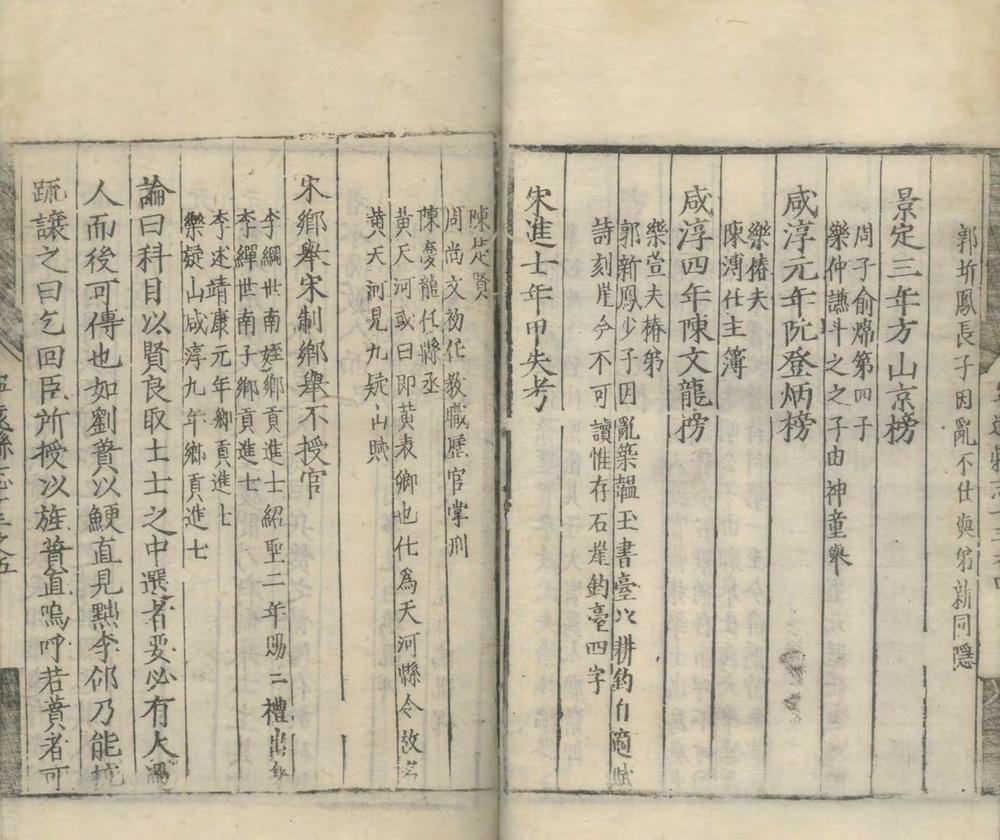 郭圻鳳長子因亂不仕與弟新同隱
景定三年方山京榜
周子俞煒第四子
樂仲謙斗之之子由神童舉
咸淳元年阮登炳榜
樂椿夫
陳溥仕主簿
咸淳四年陳文龍榜
樂萱夫椿弟
郭新鳳少子因亂築韞玉書臺以耕釣自適賦
詩刻崖今不可讀惟存石崖釣臺四字
宋進士年甲失考
陳是賢
周尚文初任教職歷官掌判
陳慶龍任縣丞
黃天河或曰卽黃表卿也仕爲天河縣令故
黃天河見九疑山賦
宋鄉舉宋制鄉舉不授官
李綱世南姪鄉貢進士紹聖二年賜二禮出身
李繟世南子鄉貢進士
李述靖康元年鄉貢進士
樂疑山咸淳九年鄉貢進士
論曰科目以賢良取士士之中選者要必有大過
人而後可傳也如劉蕡以鯁直見黜李郃乃能抗
疏讓之曰乞回臣所授以旌蕡直嗚呼若蕡者可